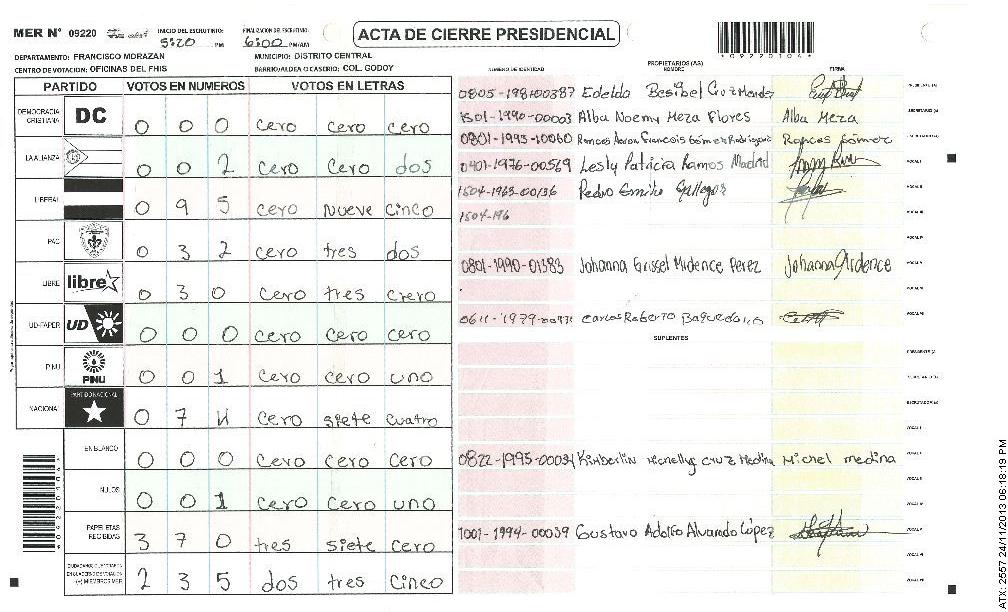 MER N° 09220
INICIO DEL ESCRUTINIO: 5:20 PM
FINALIZACION DEL ESCRUTINIO: 6:00 PM/AM
ACTA DE CIERRE PRESIDENCIAL
*09220104*
DEPARTAMENTO: FRANCISCO MORAZAN MUNICIPIO: DISTRITO CENTRAL
CENTRO DE VOTACION: OFICINAS DEL FHIS BARRIO/ALDEA O CASERIO: COL. GODOY
PARTIDO VOTOS EN NUMEROS VOTOS EN LETRAS
DEMOCRACIA CRISTIANA DC 0 0 0 cero cero cero
LA ALIANZA 0 0 2 cero cero dos
LIBERAL 0 9 5 cero nueve cinco
PAC 0 3 2 cero tres dos
LIBRE libre 0 3 0 cero tres cero
UD-FAPER UD 0 0 0 cero cero cero
PINU PINU 0 0 1 cero cero uno
NACIONAL PARTIDO NACIONAL 0 7 4 cero siete cuatro
EN BLANCO 0 0 0 cero cero cero
NULOS 0 0 1 cero cero uno
PAPELETAS RECIBIDAS 3 7 0 tres siete cero
2 3 5 dos tres cinco
NUMERO DE IDENTIDAD PROPIETARIOS (AS) NOMBRE FIRMA
0805-198100387 Edelda Besibel Cruz Mendez PRESIDENTE (A)
1501-1990-00003 Alba Noemy Meza Flores Alba Meza SECRETARIO (A)
0801-1995-10060 Ronces Aaron Francois Gómez Rodriguez Ronces Gómez ESCRUTADOR (A)
0401-1976-00569 Lesly Patricia Ramos Madrid VOCAL I
1504-1963-00136 Pedro Emilio VOCAL II
1504-196 VOCAL III
VOCAL IV
0801-1990-01583 Johanna Grissel Midence Perez Johanna Midence VOCAL V
VOCAL VI
Carlos Roberto VOCAL VII
SUPLENTES
PRESIDENTE (A)
SECRETARIO (A)
ESCRUTADOR (A)
VOCAL I
0822-1995-00034 Kimberlin Cruz Medina Michel medina
1001-1994-00039 Gustavo Adolfo Alvarado López VOCAL V
VOCAL VI
VOCAL VII
ATX: 2557 24/11/2013 06:18:19 PM